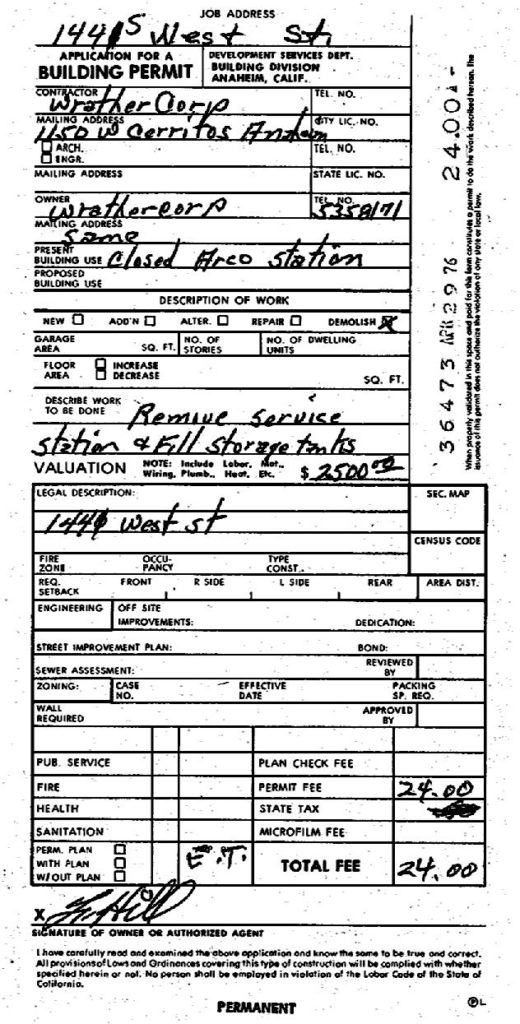 JOB ADDRESS
1441S West St.
APPLICATION FOR A
BUILDING PERMIT
DEVELOPMENT SERVICES DEPT.
BUILDING DIVISION
ANAHEIM, CALIF.
CONTRACTOR
Wrather Corp
TEL. NO.
MAILING ADDRESS
1150 W Cerritos Anaheim
CITY LIC. NO.
ARCH.
ENGR.
TEL. NO.
MAILING ADDRESS
STATE LIC. NO.
OWNER
Wrather corp
TEL. NO.
5358171
MAILING ADDRESS
Same
PRESENT
BUILDING USE Closed Arco station
PROPOSED
BUILDING USE
DESCRIPTION OF WORK
NEW ADD'N ALTER. REPAIR DEMOLISH X
GARAGE
AREA SQ. FT.
NO. OF
STORIES
NO. OF DWELLING
UNITS
FLOOR
AREA
INCREASE
DECREASE
SQ. FT.
DESCRIBE WORK
TO BE DONE Remove Service
station & Fill Storage tanks
VALUATION NOTE: Include Labor, Mat.,
Wiring, Plumb., Heat, Etc. $ 2500 00
LEGAL DESCRIPTION:
West st
SEC. MAP
CENSUS CODE
FIRE
ZONE
OCCU-
PANCY
TYPE
CONST.
REQ.
SETBACK
FRONT R SIDE L SIDE REAR AREA DIST.
ENGINEERING OFF SITE
IMPROVEMENTS: DEDICATION:
STREET IMPROVEMENT PLAN: BOND:
SEWER ASSESSMENT: REVIEWED
BY
ZONING: CASE
NO.
EFFECTIVE
DATE
PACKING
SP. REQ.
WALL
REQUIRED
APPROVED
BY
PUB. SERVICE PLAN CHECK FEE
FIRE PERMIT FEE 24.00
HEALTH STATE TAX
SANITATION MICROFILM FEE
PERM. PLAN
WITH PLAN
W/OUT PLAN
E.T.
TOTAL FEE 24.00
X
SIGNATURE OF OWNER OR AUTHORIZED AGENT
I have carefully read and examined the above application and know the same to be true and correct.
All provisions of Laws and Ordinances covering this type of construction will be complied with whether
specified herein or not. No person shall be employed in violation of the Labor Code of the State of
California.
PERMANENT
PL
36473 APR 29 76 24.00
When properly validated in this space and paid for this form constitutes a permit to do the work described hereon. The
issuance of this permit does not authorize the violation of any state or local law.